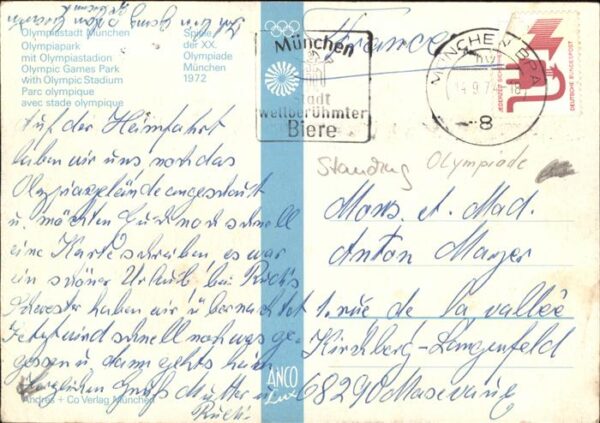 Olympiastadt München
Olympiapark
mit Olympiastadion
Olympic Games Park
with Olympic Stadium
Parc olympique
avec stade olympique
Spiele
der XX.
Olympiade
München
1972
France
München
Stadt
weltberühmter
Biere
MÜNCHEN BPA
8
DEUTSCHE BUNDESPOST
Olympiade
Auf der Heimfahrt
haben wir uns noch das
Olympiagelände angeschaut
u. möchten Euch noch schnell
eine Karte schreiben, es war
ein schöner Urlaub, bei Rudi's
Schwester haben wir übernachtet
Jetzt wird schnell noch was ge-
gessen u. dann gehts heim
Herzlichen Gruß Mutter u.
Rudi.
Mons. et. Mad.
Anton Mayer
1. rue de la vallée
Kirchberg-Langenfeld
68290 Masevaux
ANCO
Luxe
Andres + Co Verlag München